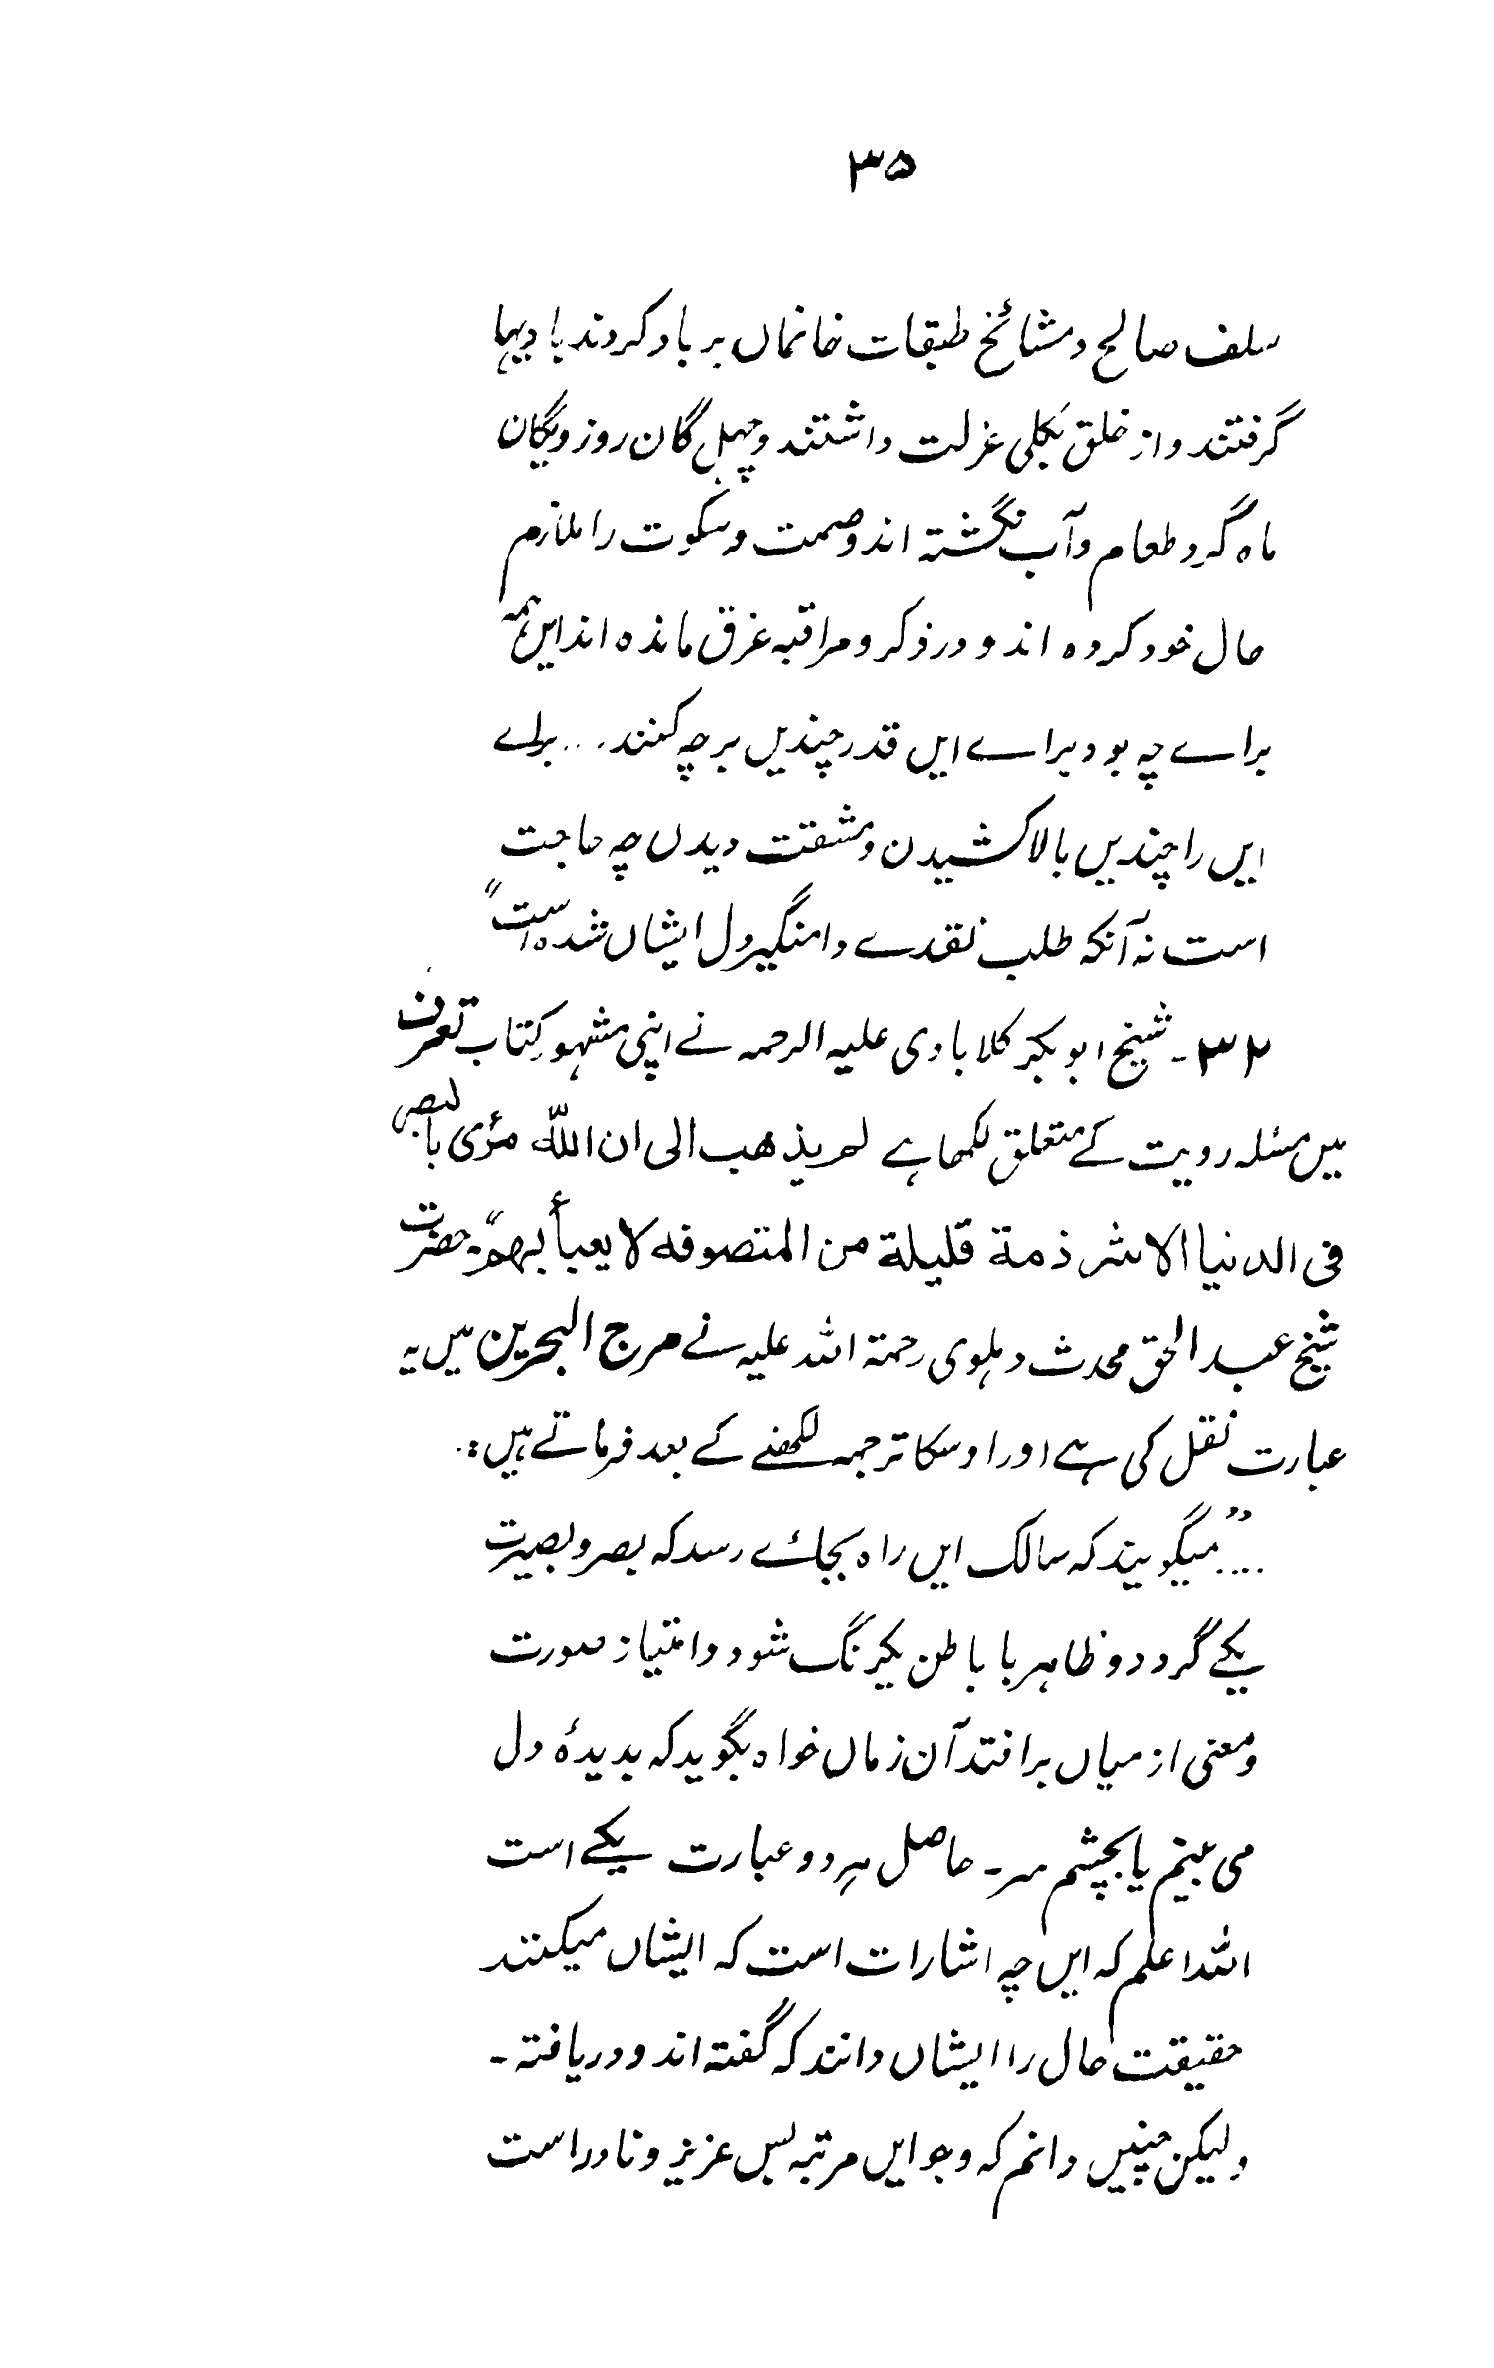 ۳۵
سلف صالح و مشائخ طبقات خانماں برباد کردند بادیہا
گرفتند و از خلق بکلی عزلت داشتند و چہل گان روز و یگان
ماہ گرد طعام و آب نگشتہ اند و صمت و سکوت را ملازم
حال خود کردہ اند و در ذکر و مراقبہ غرق ماندہ اند ایں ہمہ
براے چہ بود براے ایں قدر چندیں برچہ کنند... براے
ایں را چندیں بالا کشیدن و مشقت دیدں چہ حاجت
است نہ آنکہ طلب نقدے دامنگیر دل ایشاں شدہ است"
۳۲۔ شیخ ابوبکر کلابادی علیہ الرحمہ نے اپنی مشہور کتاب تعرف
میں مسئلہ رویت کے متعلق لکھا ہے لم یذھب الی ان اللہ مرئی بالبصر
فی الدنیا الا شرذمة قلیلة من المتصوفہ لا یعبأ بہم"۔ حضرت
شیخ عبد الحق محدث دہلوی رحمتہ اللہ علیہ نے مرج البحرین میں یہ
عبارت نقل کی ہے اور اوسکا ترجمہ لکھنے کے بعد فرماتے ہیں:۔
"....میگویند کہ سالک ایں راہ بجائے رسد کہ بصر و بصیرت
یکے گردد و ظاہر با باطن یکرنگ شود و امتیاز صورت
و معنی از میاں برافتد آن زماں خواہ بگوید کہ بدیدۂ دل
می بینم یا بچشم سر۔ حاصل ہر دو عبارت یکے است
اللہ اعلم کہ ایں چہ اشارات است کہ ایشاں میکنند
حقیقت حال را ایشاں دانند کہ گفتہ اند و دریافتہ۔
ولیکن چنیں دانم کہ وجو ایں مرتبہ بس عزیز و نادر است